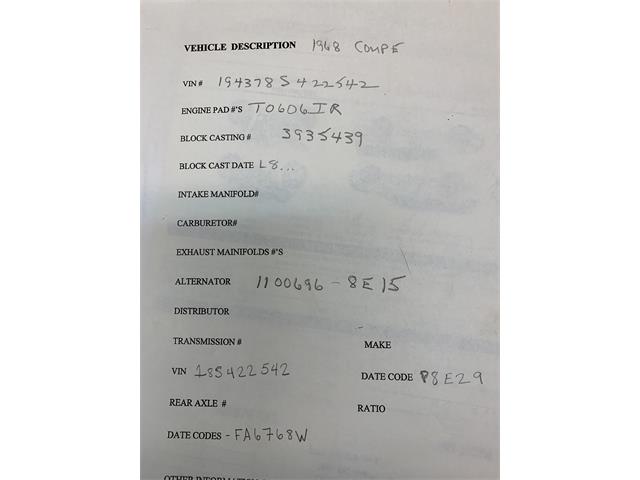 VEHICLE DESCRIPTION 1968 COUPE
VIN # 194378S422542
ENGINE PAD #'S T0606IR
BLOCK CASTING # 3935439
BLOCK CAST DATE L8...
INTAKE MANIFOLD#
CARBURETOR#
EXHAUST MAINIFOLDS #'S
ALTERNATOR 1100696 - 8E15
DISTRIBUTOR
TRANSMISSION # MAKE
VIN 18S422542 DATE CODE P8E29
REAR AXLE # RATIO
DATE CODES - FA6768W
OTHER INFORMATION